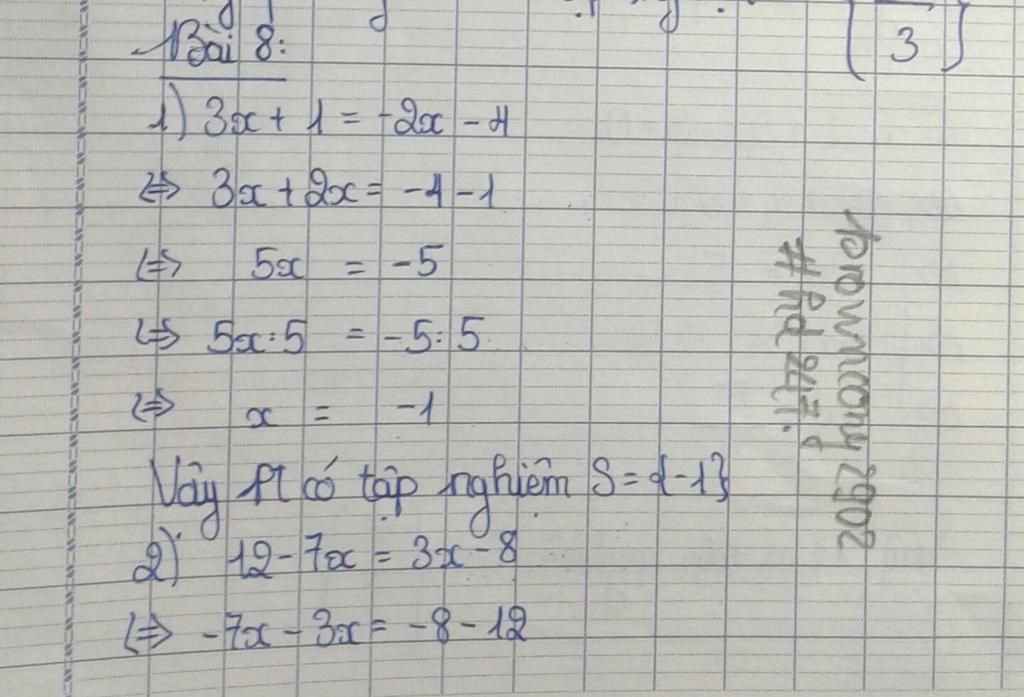 Bài 8:
3
1) 3x + 1 = -2x - 4
⇔ 3x + 2x = -4 - 1
⇔ 5x = -5
⇔ 5x : 5 = -5 : 5
⇔ x = -1
Vậy Pt có tập nghiệm S = {-1}
2) 12 - 7x = 3x - 8
⇔ -7x - 3x = -8 - 12